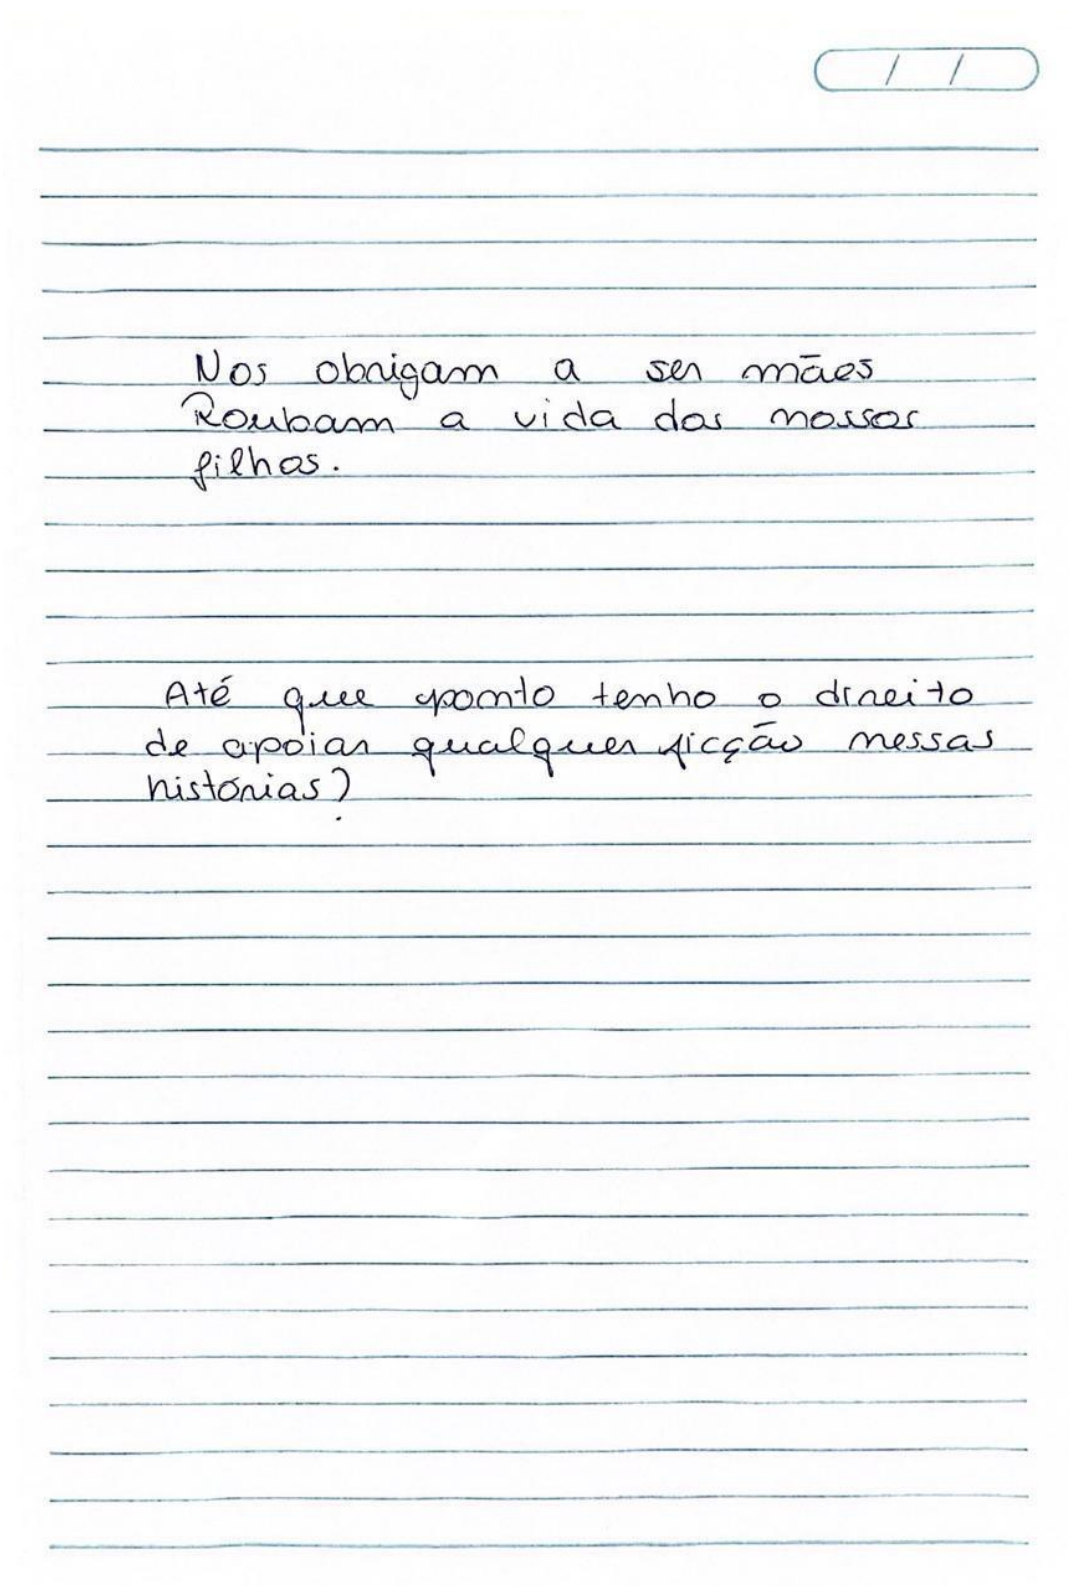 Nos obrigam a ser mães
Roubam a vida dos nossos
filhos.
Até que ponto tenho o direito
de apoiar qualquer ficção nessas
histórias?